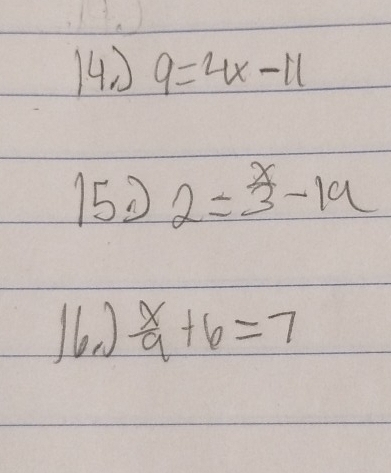 14.) 9=4x-11
15.) 2=x/3-19
16.) x/9+6=7